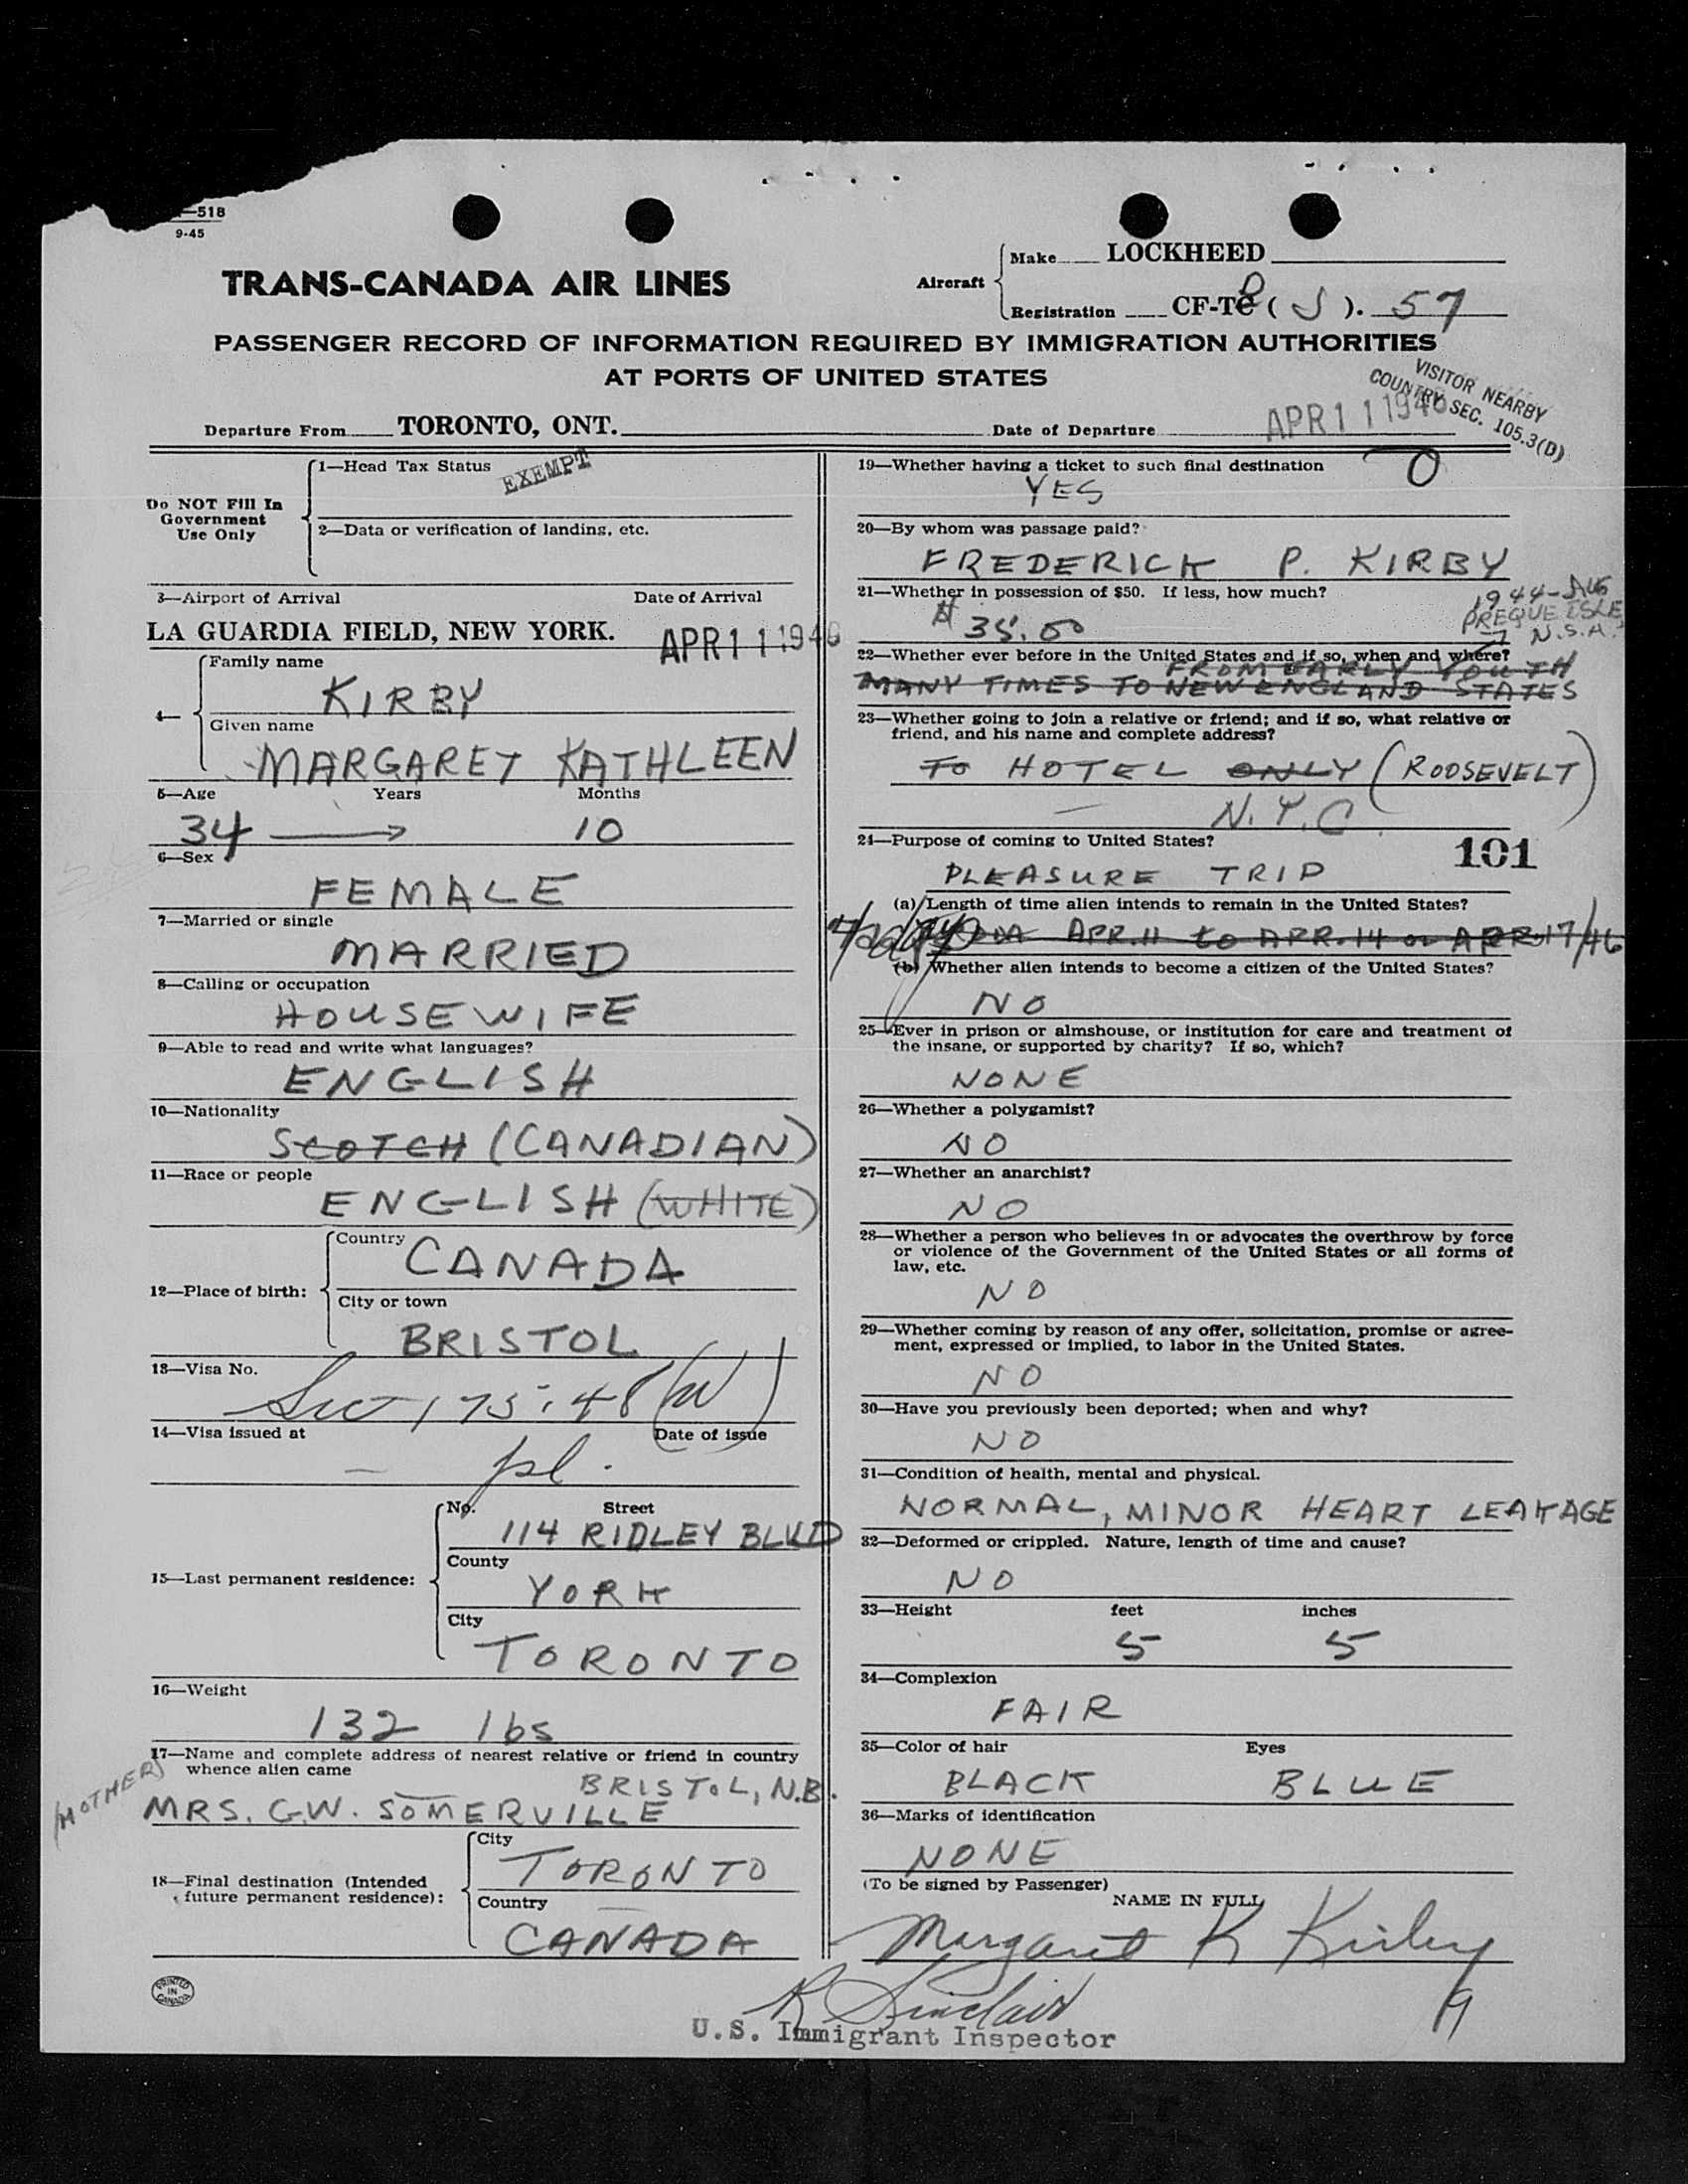 —518
9-45
TRANS-CANADA AIR LINES
Aircraft
Make LOCKHEED
Registration CF-TC D ( J ). 57
PASSENGER RECORD OF INFORMATION REQUIRED BY IMMIGRATION AUTHORITIES
AT PORTS OF UNITED STATES
VISITOR NEARBY
COUNTRY SEC. 105.3(D)
Departure From TORONTO, ONT. Date of Departure APR 11 1946
Do NOT Fill In
Government
Use Only
1—Head Tax Status EXEMPT
2—Data or verification of landing, etc.
3—Airport of Arrival Date of Arrival
LA GUARDIA FIELD, NEW YORK. APR 11 1946
4—
Family name
KIRBY
Given name
MARGARET KATHLEEN
5—Age Years Months
34 10
6—Sex
FEMALE
7—Married or single
MARRIED
8—Calling or occupation
HOUSEWIFE
9—Able to read and write what languages?
ENGLISH
10—Nationality
SCOTCH (CANADIAN)
11—Race or people
ENGLISH (WHITE)
12—Place of birth:
Country
CANADA
City or town
BRISTOL
13—Visa No.
175.48
14—Visa issued at Date of issue
pl.
15—Last permanent residence:
No. Street
114 RIDLEY BLVD
County
YORK
City
TORONTO
16—Weight
132 lbs
17—Name and complete address of nearest relative or friend in country
whence alien came
BRISTOL, N.B.
(MOTHER)
MRS. G.W. SOMERVILLE
18—Final destination (Intended
future permanent residence):
City
TORONTO
Country
CANADA
PRINTED
IN
CANADA
19—Whether having a ticket to such final destination
YES
O
20—By whom was passage paid?
FREDERICK P. KIRBY
21—Whether in possession of $50. If less, how much?
$ 35.00
1944-AUG
PREQUE ISLE
22—Whether ever before in the United States and if so, when and where?
FROM EARLY YOUTH
MANY TIMES TO NEW ENGLAND STATES
23—Whether going to join a relative or friend; and if so, what relative or
friend, and his name and complete address?
TO HOTEL ONLY (ROOSEVELT)
N.Y.C.
24—Purpose of coming to United States?
101
PLEASURE TRIP
(a) Length of time alien intends to remain in the United States?
APR. 11 to APR. 14 or APR. 17/46
(b) Whether alien intends to become a citizen of the United States?
NO
25—Ever in prison or almshouse, or institution for care and treatment of
the insane, or supported by charity? If so, which?
NONE
26—Whether a polygamist?
NO
27—Whether an anarchist?
NO
28—Whether a person who believes in or advocates the overthrow by force
or violence of the Government of the United States or all forms of
law, etc.
NO
29—Whether coming by reason of any offer, solicitation, promise or agree-
ment, expressed or implied, to labor in the United States.
NO
30—Have you previously been deported; when and why?
NO
31—Condition of health, mental and physical.
NORMAL, MINOR HEART LEAKAGE
32—Deformed or crippled. Nature, length of time and cause?
NO
33—Height feet inches
5 5
34—Complexion
FAIR
35—Color of hair Eyes
BLACK BLUE
36—Marks of identification
NONE
(To be signed by Passenger)
NAME IN FULL
Margaret K Kirby
R Sinclair
U.S. Immigrant Inspector